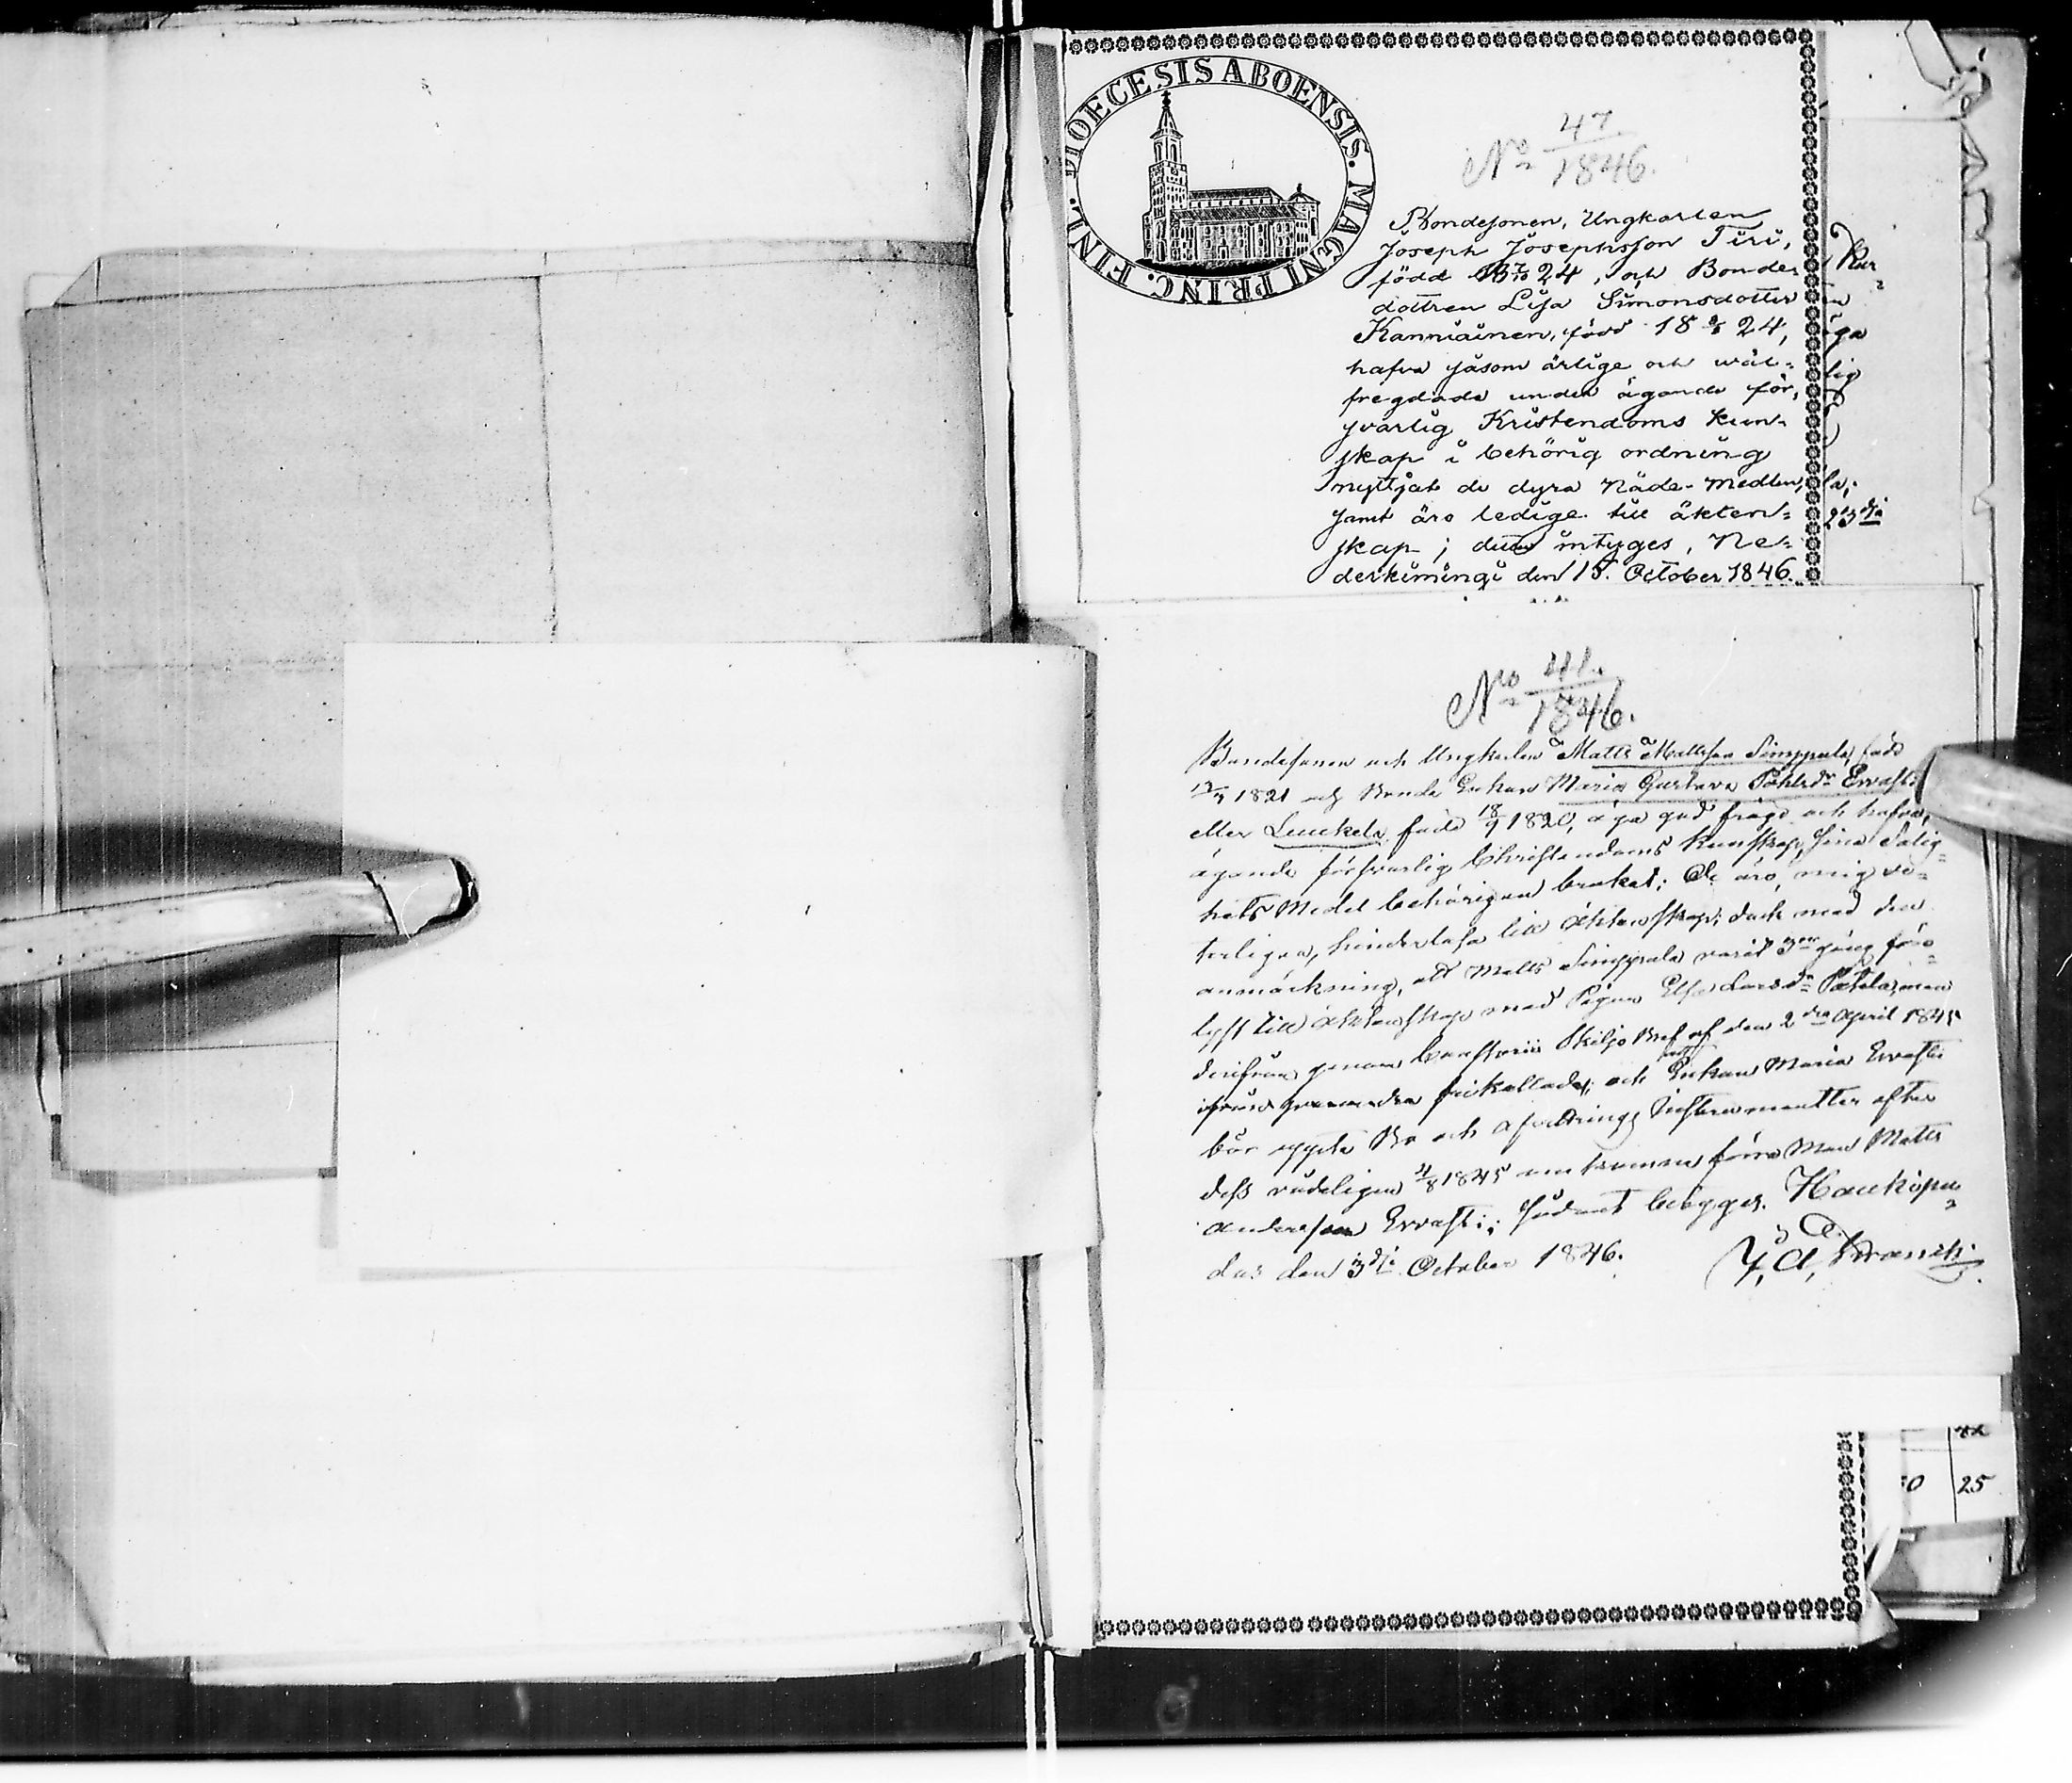 DIOECESIS ABOENSIS. MAGNI PRINC. FINL.
No 47
1846.
Bondesonen, Ungkarlen
Joseph Josephsson Tiri,
född 18 7/10 24, och Bonde
dottren Lisa Simonsdotter
Kanniainen, född 18 24,
hafva såsom ärlige och wäl-
fregdade under ägande för-
svarlig Kristendoms kun-
skap i behörig ordning
nyttjat de dyra Nåde-Medlen,
samt äro ledige till äkten-
skap; intyges, Ne-
derkimingi den 15. October 1846.
ga
lig
la;
23dje
No
1846.
Bondesonen och Ungkarlen Matts Mattsson Simppala, född
1821 och Bonde Enkan Maria Gustava Påhlsdr Ervasti
eller Luukela född 18/9 1820, äga god frägd och hafva,
ägande försvarlig Christendoms Kunskap, sina Salig-
hets Medel behörigen brukat; De äro, mig ve-
terligen, hinderlösa till äktenskap; dock med den
anmärkning, att Matts Simppala varit 3ne gång för-
lyst till äktenskap med Pigan Larsdr men
derifrån genom Consistorii Skiljo Bref af den 2dra April 1845
frikallad; och Enkan Maria Ervasti
bör uppte Bo och afvittrings Instrumenter efter
dess 1845 omkomne förra Man Matts
Andersson Ervasti; sådant betygges. Haukipu-
das den 3dje October 1846.
25